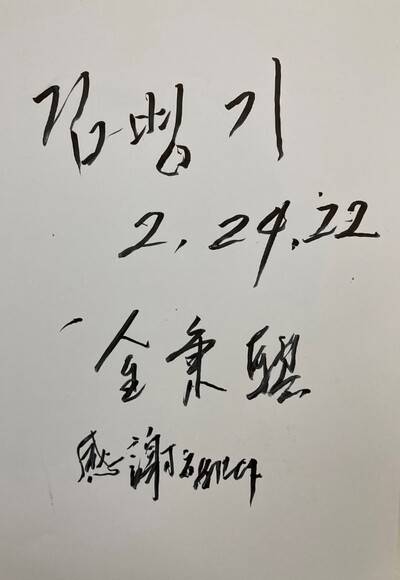 김병기
2, 24, 22
金秉騏
感謝합니다